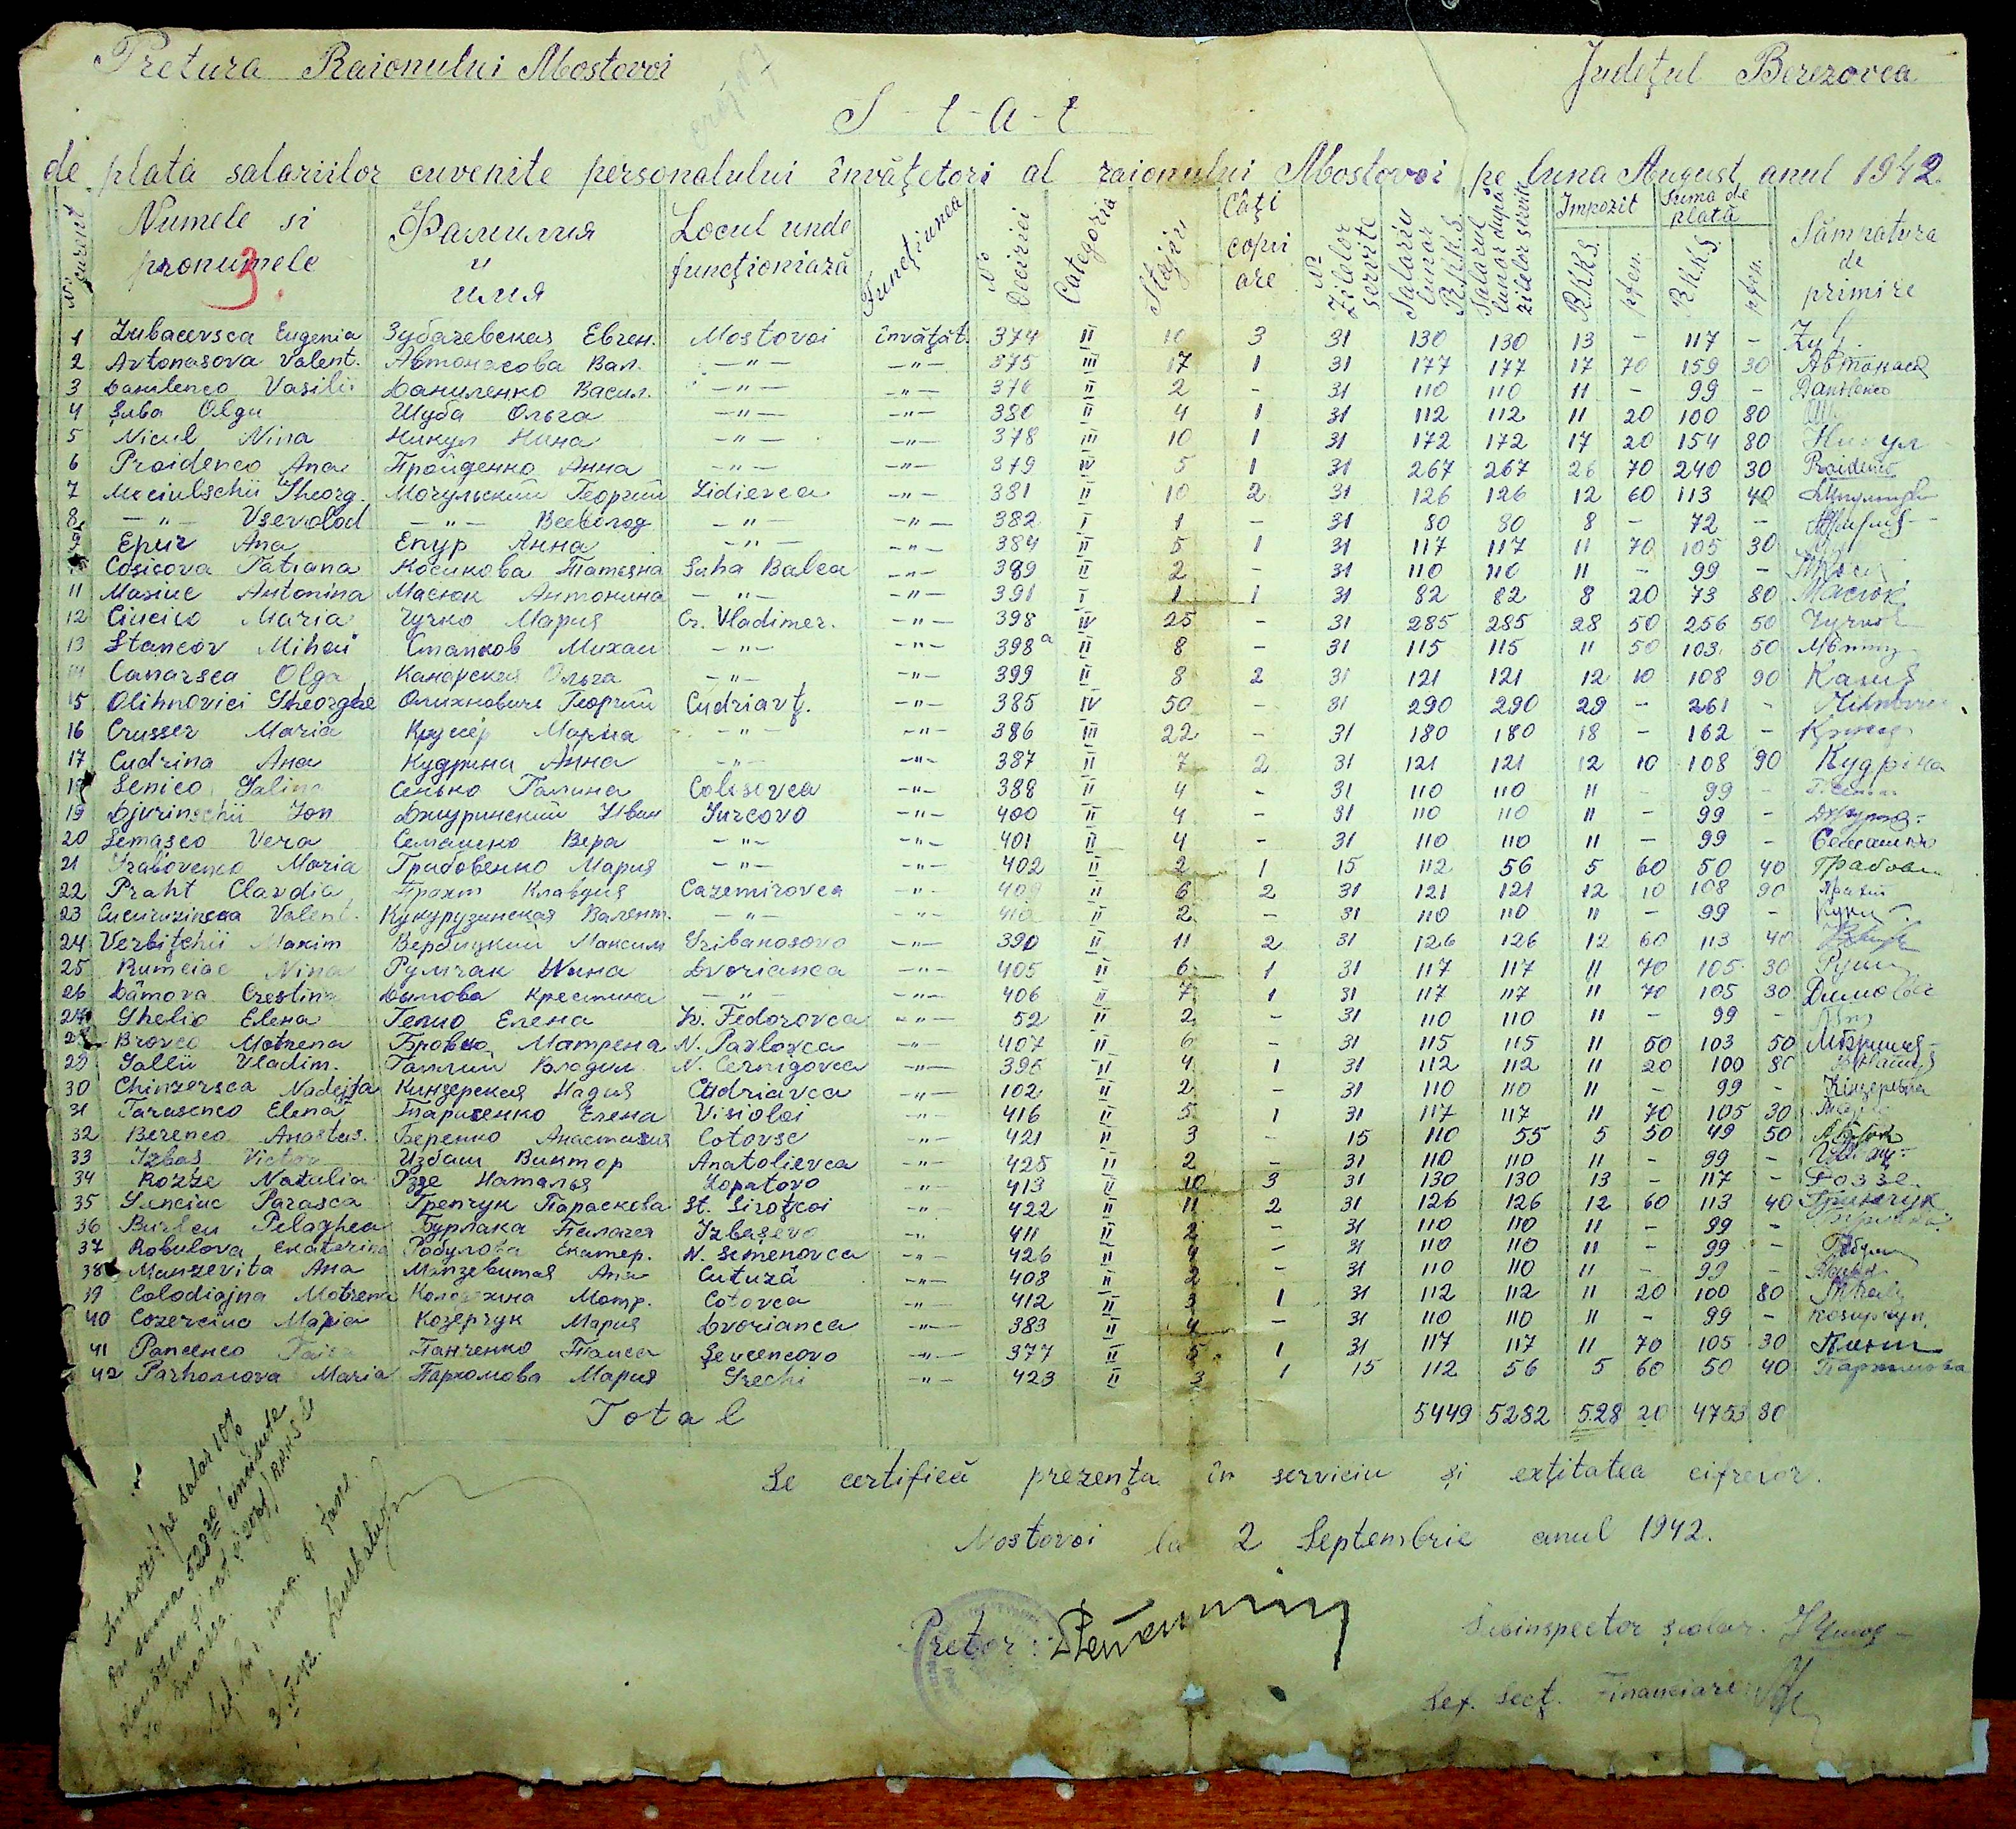 Pretura Raionului Mostovoi
Judeţul Berezovca
S-t-a-t
de plata salariilor cuvenite personalului învăţetori al raionului Mostovoi pe luna August anul 1942.
№ curent Numele si pronumele Фамилия и имя Locul unde funcţioniază Funcţiunea № Deciziei Categoria Stajiu Câţi copii are № zilelor servite Salariu lunar R.K.K.S. Salariul lunar după zilelor servite Impozit R.K.K.S. pfen. Suma de plată R.K.K.S. pfen. Sămnatura de primire
3.
1 Zubacevsca Eugenia Зубачевская Евген. Mostovoi învăţăt. 374 II 10 3 31 130 130 13 - 117 - Зуб.
2 Avtonasova Valent. Автонасова Вал. -"- -"- 375 III 17 1 31 177 177 17 70 159 30 Автонас
3 Danilenco Vasilii Даниленко Васил. -"- -"- 376 II 2 - 31 110 110 11 - 99 - Даниленко
4 Şuba Olga Шуба Ольга -"- -"- 380 II 4 1 31 112 112 11 20 100 80
5 Nicul Nina Никул Нина -"- -"- 378 III 10 1 31 172 172 17 20 154 80 Никул
6 Proidenco Ana Пройденко Анна -"- -"- 379 IV 5 1 31 267 267 26 70 240 30 Proidenco
7 Maciulschii Gheorg. Мочульский Георгий Lidievca -"- 381 II 10 2 31 126 126 12 60 113 40
8 -"- Vsevolod -"- Всеволод -"- -"- 382 I 1 - 31 80 80 8 - 72 -
9 Epur Ana Епур Анна -"- -"- 384 II 5 1 31 117 117 11 70 105 30
Cosicova Tatiana Косикова Татяна Suha Balca -"- 389 II 2 - 31 110 110 11 - 99 -
11 Masiuc Antonina Масюк Антонина -"- -"- 391 I 1 1 31 82 82 8 20 73 80 Масюк
12 Ciucico Maria Чучко Мария Cr. Vladimer. -"- 398 IV 25 - 31 285 285 28 50 256 50
13 Stancov Mihai Станков Михаи -"- -"- 398a II 8 - 31 115 115 11 50 103 50
14 Canarsca Olga Канарская Ольга -"- -"- 399 II 8 2 31 121 121 12 10 108 90
15 Olihnovici Gheorghe Олихнович Георгий Cudriavţ. -"- 385 IV 50 - 31 290 290 29 - 261 -
16 Crusser Maria Крусер Мариа -"- -"- 386 III 22 - 31 180 180 18 - 162 -
17 Cudrina Ana Кудрина Анна -"- -"- 387 II 7 2 31 121 121 12 10 108 90 Кудріна
18 Senico Galina Сенько Галина Colosovca -"- 388 II 4 - 31 110 110 11 - 99 -
19 Djurinschii Ion Джуринский Иван Iurcovo -"- 400 II 4 - 31 110 110 11 - 99 -
20 Semaşco Vera Семашко Вера -"- -"- 401 II 4 - 31 110 110 11 - 99 - Семашко
21 Grabovenco Maria Грабовенко Мария -"- -"- 402 II 2 1 15 112 56 5 60 50 40 Грабовен
22 Praht Clavdia Прахт Клавдия Cazemirovca -"- 409 II 6 2 31 121 121 12 10 108 90 Прахт
23 Cucuruzinscaa Valent. Кукурузинская Валент. -"- -"- 410 II 2 - 31 110 110 11 - 99 -
24 Verbiţchii Maxim Вербицкий Максим Gribanosovo -"- 390 II 11 2 31 126 126 12 60 113 40
25 Rumciac Nina Румчак Нина Dvorianca -"- 405 II 6 1 31 117 117 11 70 105 30
26 Dâmova Crestina Дымова Крестина -"- -"- 406 II 7 1 31 117 117 11 70 105 30 Димова
27 Ghelio Elena Гелио Елена Iv. Fedorovca -"- 52 II 2 - 31 110 110 11 - 99 -
28 Brovco Motrena Бровко Матрена N. Pavlovca -"- 407 II 6 - 31 115 115 11 50 103 50
29 Gallii Vladim. Галлий Владим. N. Cernigovca -"- 396 II 4 1 31 112 112 11 20 100 80
30 Chinzersca Nadejda Кинзерская Надия Cudriavca -"- 102 II 2 - 31 110 110 11 - 99 -
31 Tarasenco Elena Тарасенко Елена Visioloi -"- 416 II 5 1 31 117 117 11 70 105 30
32 Berenco Anastas. Беренко Анастасия Cotovsc -"- 421 II 3 - 15 110 55 5 50 49 50
33 Izbas Victor Избаш Виктор Anatolievca -"- 425 II 2 - 31 110 110 11 - 99 -
34 Rozze Natalia Рззе Наталья Lopatovo -"- 413 II 10 3 31 130 130 13 - 117 - Роззе
35 Grenciuc Parasca Гренчук Параскова St. Siroţcoi -"- 422 II 11 2 31 126 126 12 60 113 40 Гринчук
36 Burlacu Pelaghea Бурлака Пилагея Izbaşevo -"- 411 II 2 - 31 110 110 11 - 99 -
37 Robulova Ekaterina Робулова Екатер. N. Semenovca -"- 426 II 4 - 31 110 110 11 - 99 -
38 Manzevita Ana Манзевитая Ана Cutuză -"- 408 II 2 - 31 110 110 11 - 99 -
39 Colodiajna Motrena Колодяжна Мотр. Cotovca -"- 412 II 3 1 31 112 112 11 20 100 80
40 Cozerciuc Maria Козерчук Мария Dvorianca -"- 383 II 4 - 31 110 110 11 - 99 -
41 Pancenco Taisa Панченко Таиса Şevcencovo -"- 377 II 5 1 31 117 117 11 70 105 30
42 Parhomova Maria Пархомова Мария Grechi -"- 423 II 3 1 15 112 56 5 60 50 40 Пархомова
Total 5449 5282 528 20 4753 80
Se certifică prezenţa în serviciu şi exţitatea cifrelor.
Mostovoi la 2 Septembrie anul 1942.
Pretor:
Subinspector şcolar.
Şef. Secţ. Financiare
Impozit pe salar 10%
în suma 528 20 /cincisute